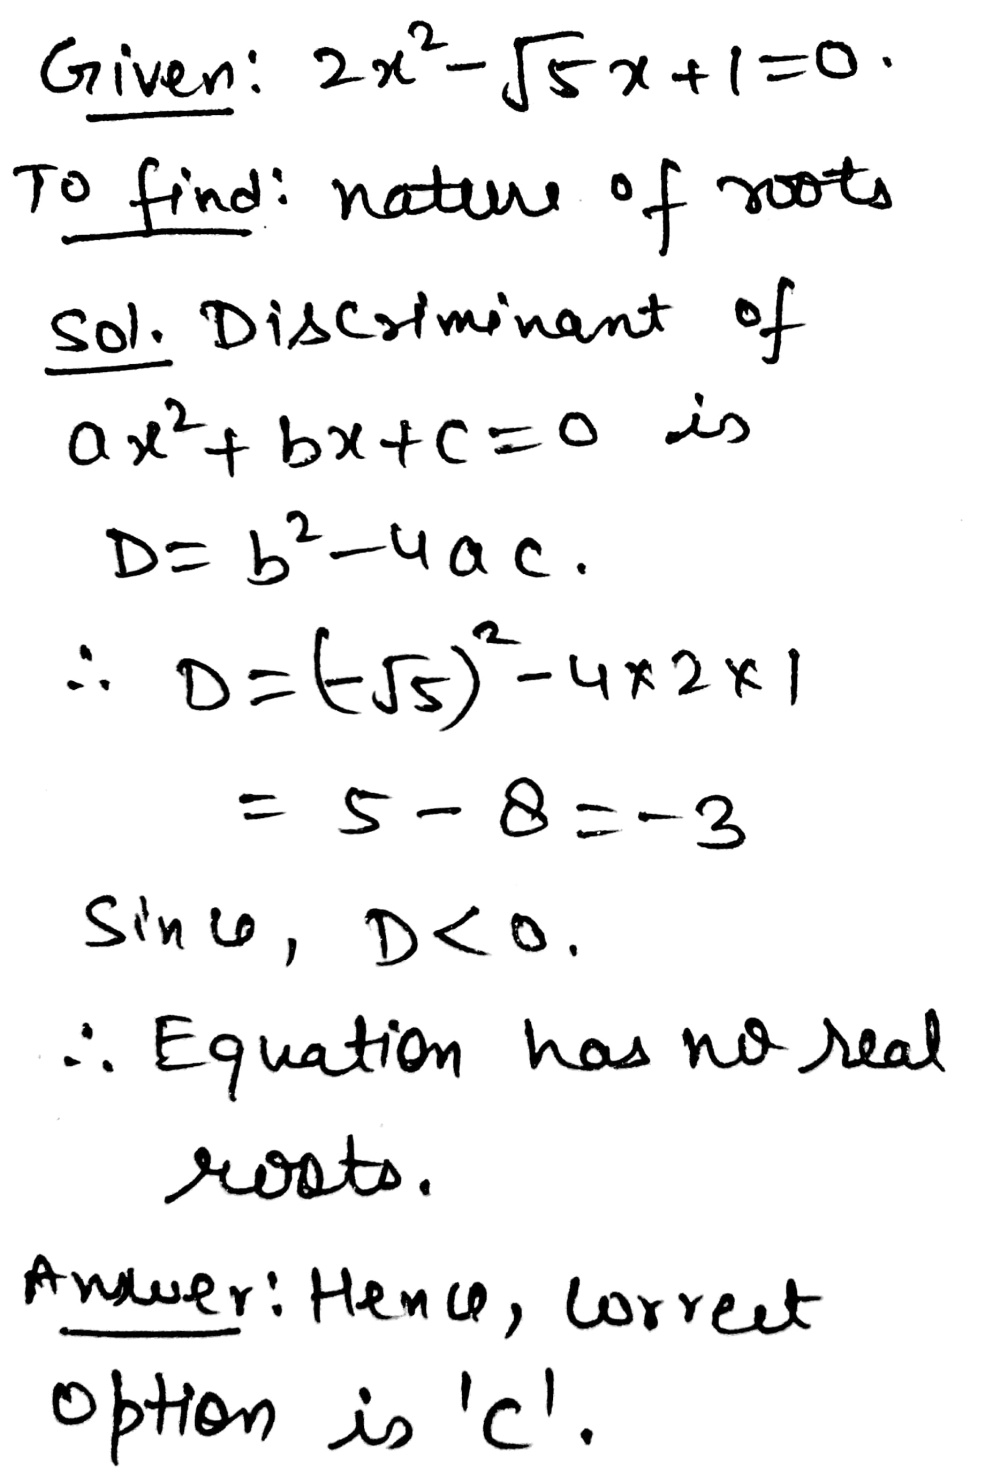 Given: 2x² - √5x + 1 = 0.
To find: nature of roots
Sol. Discriminant of
ax² + bx + c = 0 is
D = b² - 4ac.
∴ D = (-√5)² - 4 × 2 × 1
= 5 - 8 = -3
Since, D < 0.
∴ Equation has no real
roots.
Answer: Hence, correct
option is 'c'.